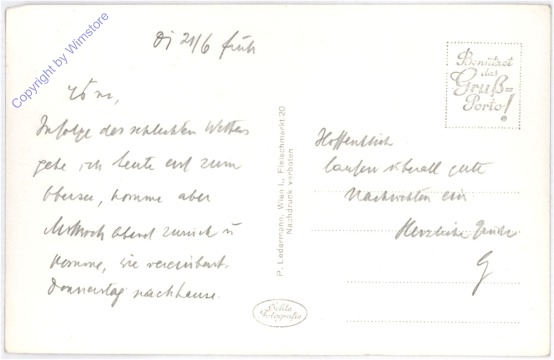 Copyright by Wimstore
Di 21/6 früh
Infolge des schlechten Wetters
gehe ich heute erst zum
Obersee, komme aber
Mittwoch Abend zurück u
komme, wie vereinbart,
Donnerstag nachhause.
Hoffentlich
laufen überall gute
Nachrichten ein.
Herzliche Grüße
G
Benützet
das
Gruß=
Porto!
P. Ledermann, Wien I., Fleischmarkt 20
Nachdruck verboten
Echte
Fotografie